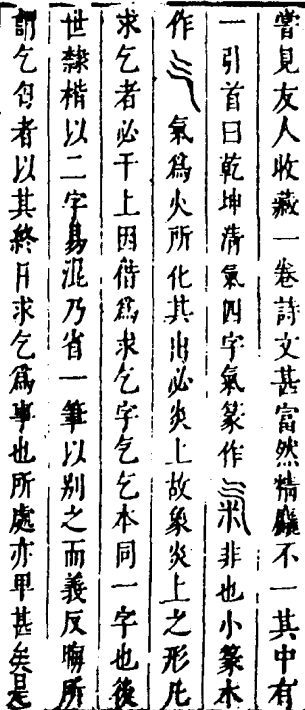 嘗見友人收藏一卷詩文甚富然精麤不一其中有
一引首曰乾坤清氣四字氣篆作氣非也小篆本
作气氣為火所化其出必炎上故象炎上之形凡
求乞者必干上因借為求乞字气乞本同一字也後
世隸楷以二字易混乃省一筆以别之而義反晦所
謂乞匄者以其終日求乞為事也所處亦甲甚矣是